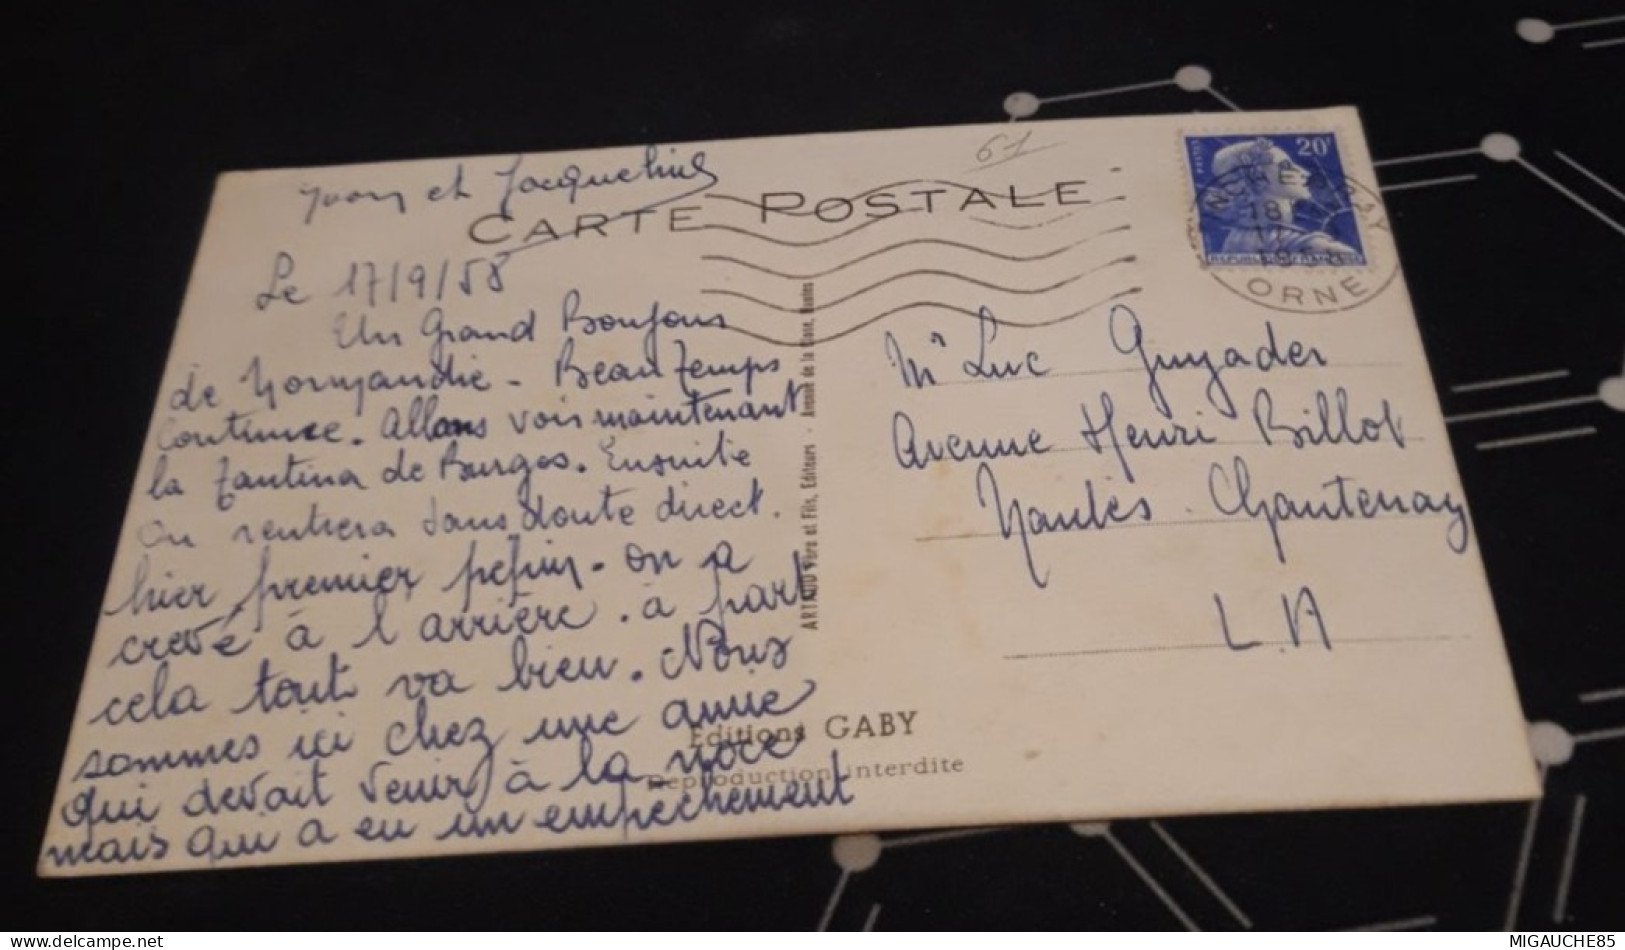 61
Yvon et Jacqueline
CARTE POSTALE
20F
POSTES
18
ORNE
Le 17/9/58
Un Grand Bonjour
de Normandie - Beau Temps
Continue. Allons voir maintenant
la Fantina de Burgos. Ensuite
on rentrera sans doute direct.
hier, premier pépin - on a
crevé à l'arrière. à part
cela tout va bien. Nous
sommes ici chez une amie
qui devait venir à la noce
mais qui a eu un empêchement
ARTAUD Père et Fils, Editeurs - Avenue de la Close, Nantes
Mr Luc Guyader
Avenue Henri Billot
Nantes - Chantenay
L.A
Editions GABY
Reproduction interdite
MIGAUCHE85